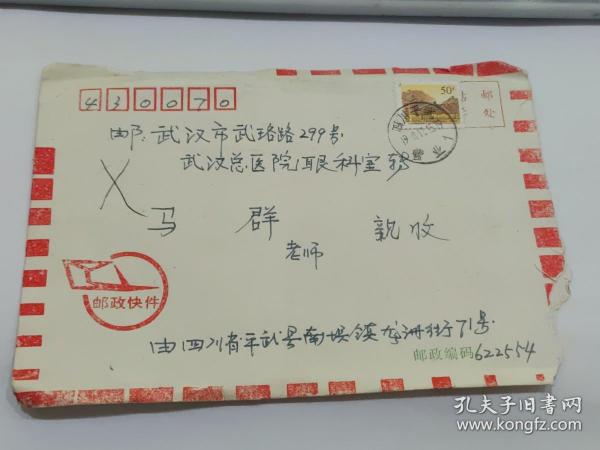 430070
50分
贴邮
票处
邮: 武汉市武珞路299号
武汉总医院眼科室转
马 群 亲收
老师
邮政快件
由四川省平武县南坝镇龙洲街71号
邮政编码622554
孔夫子旧书网
www.kongfz.com